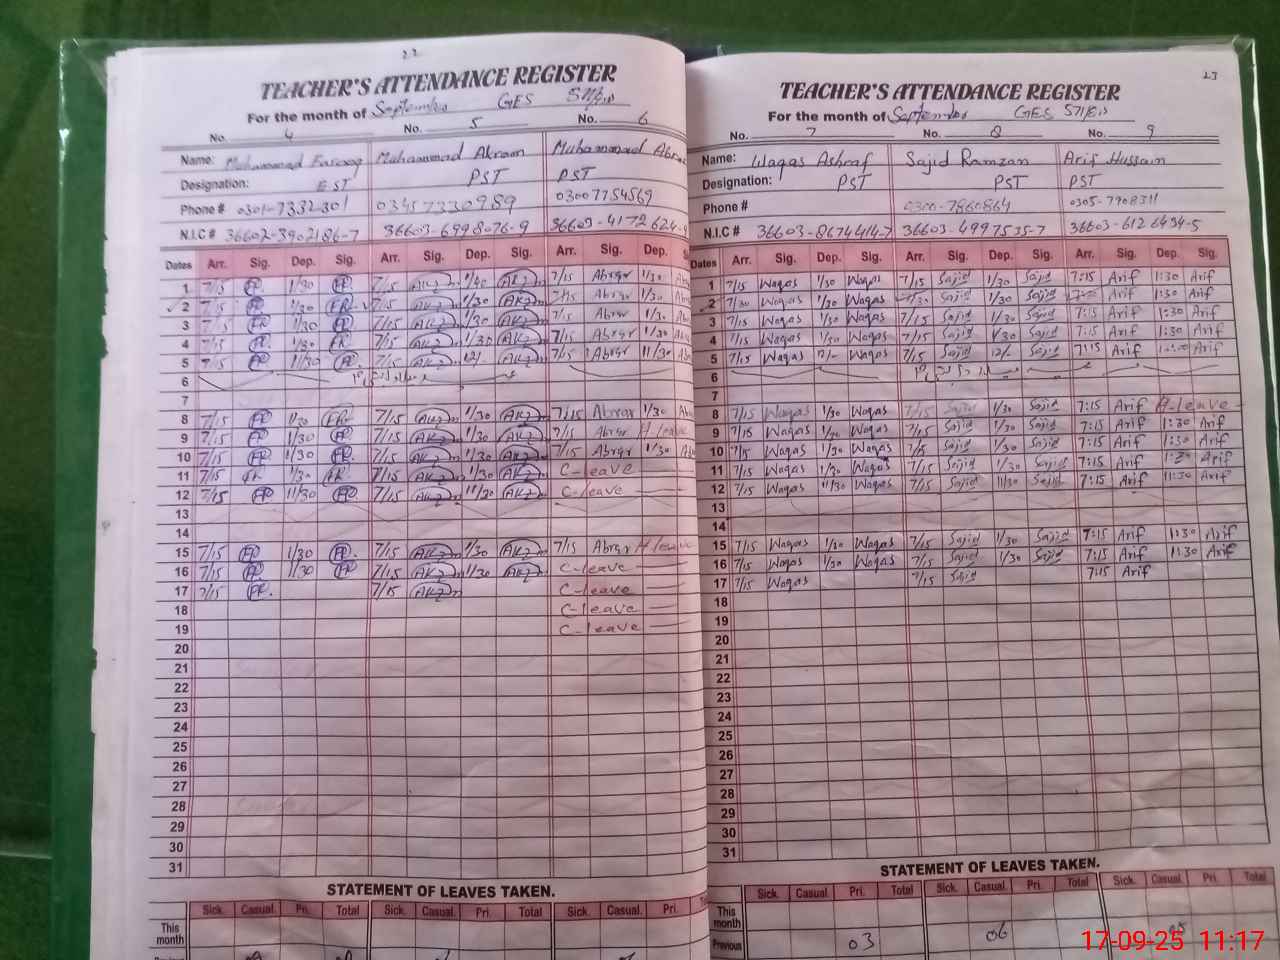 22
TEACHER'S ATTENDANCE REGISTER
For the month of September GES
No. 4 No. 5 No. 6
Name: Muhammad Farooq Muhammad Akram Muhammad
Designation: EST PST PST
Phone # 0301-7332301 03457330989 03007754569
N.I.C # 36602-3902186-7 36603-6998076-9 36603-4172626-9
Dates Arr. Sig. Dep. Sig. Arr. Sig. Dep. Sig. Arr. Sig. Dep. S
1 7/15 1/30 7/15 1/30 7/15 Abrar 1/30
2 7/15 1/30 7/15 1/30 7/15 Abrar 1/30
3 7/15 1/30 7/15 1/30 7/15 Abrar 1/30
4 7/15 1/30 7/15 1/30 7/15 Abrar 1/30
5 7/15 11/30 7/15 12/- 7/15 Abrar 11/30
6
7
8 7/15 1/30 7/15 1/30 7/15 Abrar 1/30
9 7/15 1/30 7/15 1/30 7/15 Abrar H.leave
10 7/15 1/30 7/15 1/30 7/15 Abrar 1/30
11 7/15 1/30 7/15 1/30 C-leave
12 7/15 11/30 7/15 11/30 C-leave
13
14
15 7/15 1/30 7/15 1/30 7/15 Abrar H.leave
16 7/15 11/30 7/15 1/30 C-leave
17 7/15 7/15 C-leave
18 C-leave
19 C-leave
20
21
22
23
24
25
26
27
28
29
30
31
STATEMENT OF LEAVES TAKEN.
Sick. Casual. Pri. Total Sick. Casual. Pri. Total Sick. Casual. Pri.
This month
23
TEACHER'S ATTENDANCE REGISTER
For the month of September GES
No. 7 No. 8 No. 9
Name: Waqas Ashraf Sajid Ramzan Arif Hussain
Designation: PST PST PST
Phone # 0300-7860864 0305-7908311
N.I.C # 36603-8674414-7 36603-4997535-7 36603-6126434-5
Dates Arr. Sig. Dep. Sig. Arr. Sig. Dep. Sig. Arr. Sig. Dep. Sig.
1 7/15 Waqas 1/30 Waqas 7/15 Sajid 1/30 Sajid 7:15 Arif 1:30 Arif
2 7/30 Waqas 1/30 Waqas Sajid 1/30 Sajid Arif 1:30 Arif
3 7/15 Waqas 1/30 Waqas 7/15 Sajid 1/30 Sajid 7:15 Arif 1:30 Arif
4 7/15 Waqas 1/30 Waqas 7/15 Sajid 1/30 Sajid 7:15 Arif 1:30 Arif
5 7/15 Waqas 12/- Waqas 7/15 Sajid 12/- Sajid 7:15 Arif Arif
6
7
8 7/15 Waqas 1/30 Waqas 7/15 Sajid 1/30 Sajid 7:15 Arif H-leave
9 7/15 Waqas 1/30 Waqas 7/15 Sajid 1/30 Sajid 7:15 Arif 1:30 Arif
10 7/15 Waqas 1/30 Waqas 7/15 Sajid 1/30 Sajid 7:15 Arif 1:30 Arif
11 7/15 Waqas 1/30 Waqas 7/15 Sajid 1/30 Sajid 7:15 Arif 1:30 Arif
12 7/15 Waqas 11/30 Waqas 7/15 Sajid 11/30 Sajid 7:15 Arif 11:30 Arif
13
14
15 7/15 Waqas 1/30 Waqas 7/15 Sajid 1/30 Sajid 7:15 Arif 11:30 Arif
16 7/15 Waqas 1/30 Waqas 7/15 Sajid 1/30 Sajid 7:15 Arif 11:30 Arif
17 7/15 Waqas 7/15 Sajid 7:15 Arif
18
19
20
21
22
23
24
25
26
27
28
29
30
31
STATEMENT OF LEAVES TAKEN.
Sick. Casual. Pri. Total Sick. Casual. Pri. Total Sick. Casual. Pri. Total
This month
Previous 03 06 05
17-09-25 11:17